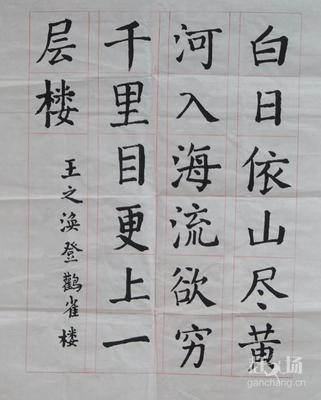 白日依山尽黄
河入海流欲穷
千里目更上一
层楼
王之涣登鹳雀楼
ganchang.cn